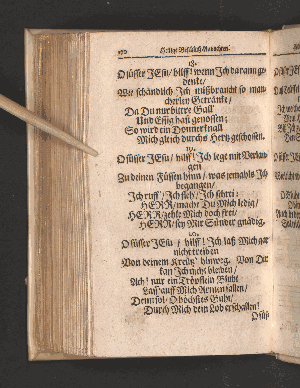 170 Heilige
18.
O süsser JEsu / hilff! wenn Ich daran ge-
dencke /
Wie schändlich Ich mißbraucht so man-
cherley Geträncke /
Da Du nur bittre Gall
Und Essig hast genossen;
So wird ein Donnerknall
Mich gleich durchs Hertz geschossen.
19.
O süsser JEsu / hilff! Ich lege mit Verlan-
gen
Zu deinen Füssen hinn / was jemahls Ich
begangen /
Ich ruff / Ich fleh / Ich schrei:
HERR / mache Du Mich ledig /
HERR / gehle Mich doch frei /
HERR / sey Mir Sünder gnädig.
20.
O süsser JEsu / hilff! Ich laß Mich gar
nicht treiben
Von deinem Kreutz' hinweg. Von Dir
kan Ich nicht bleiben /
Ach! nur ein Tröpflein Bluht
Lass' auff Mich Armen fallen /
Denn sol / O höchstes Guht /
Durch Mich dein Lob erschallen!
O süs-